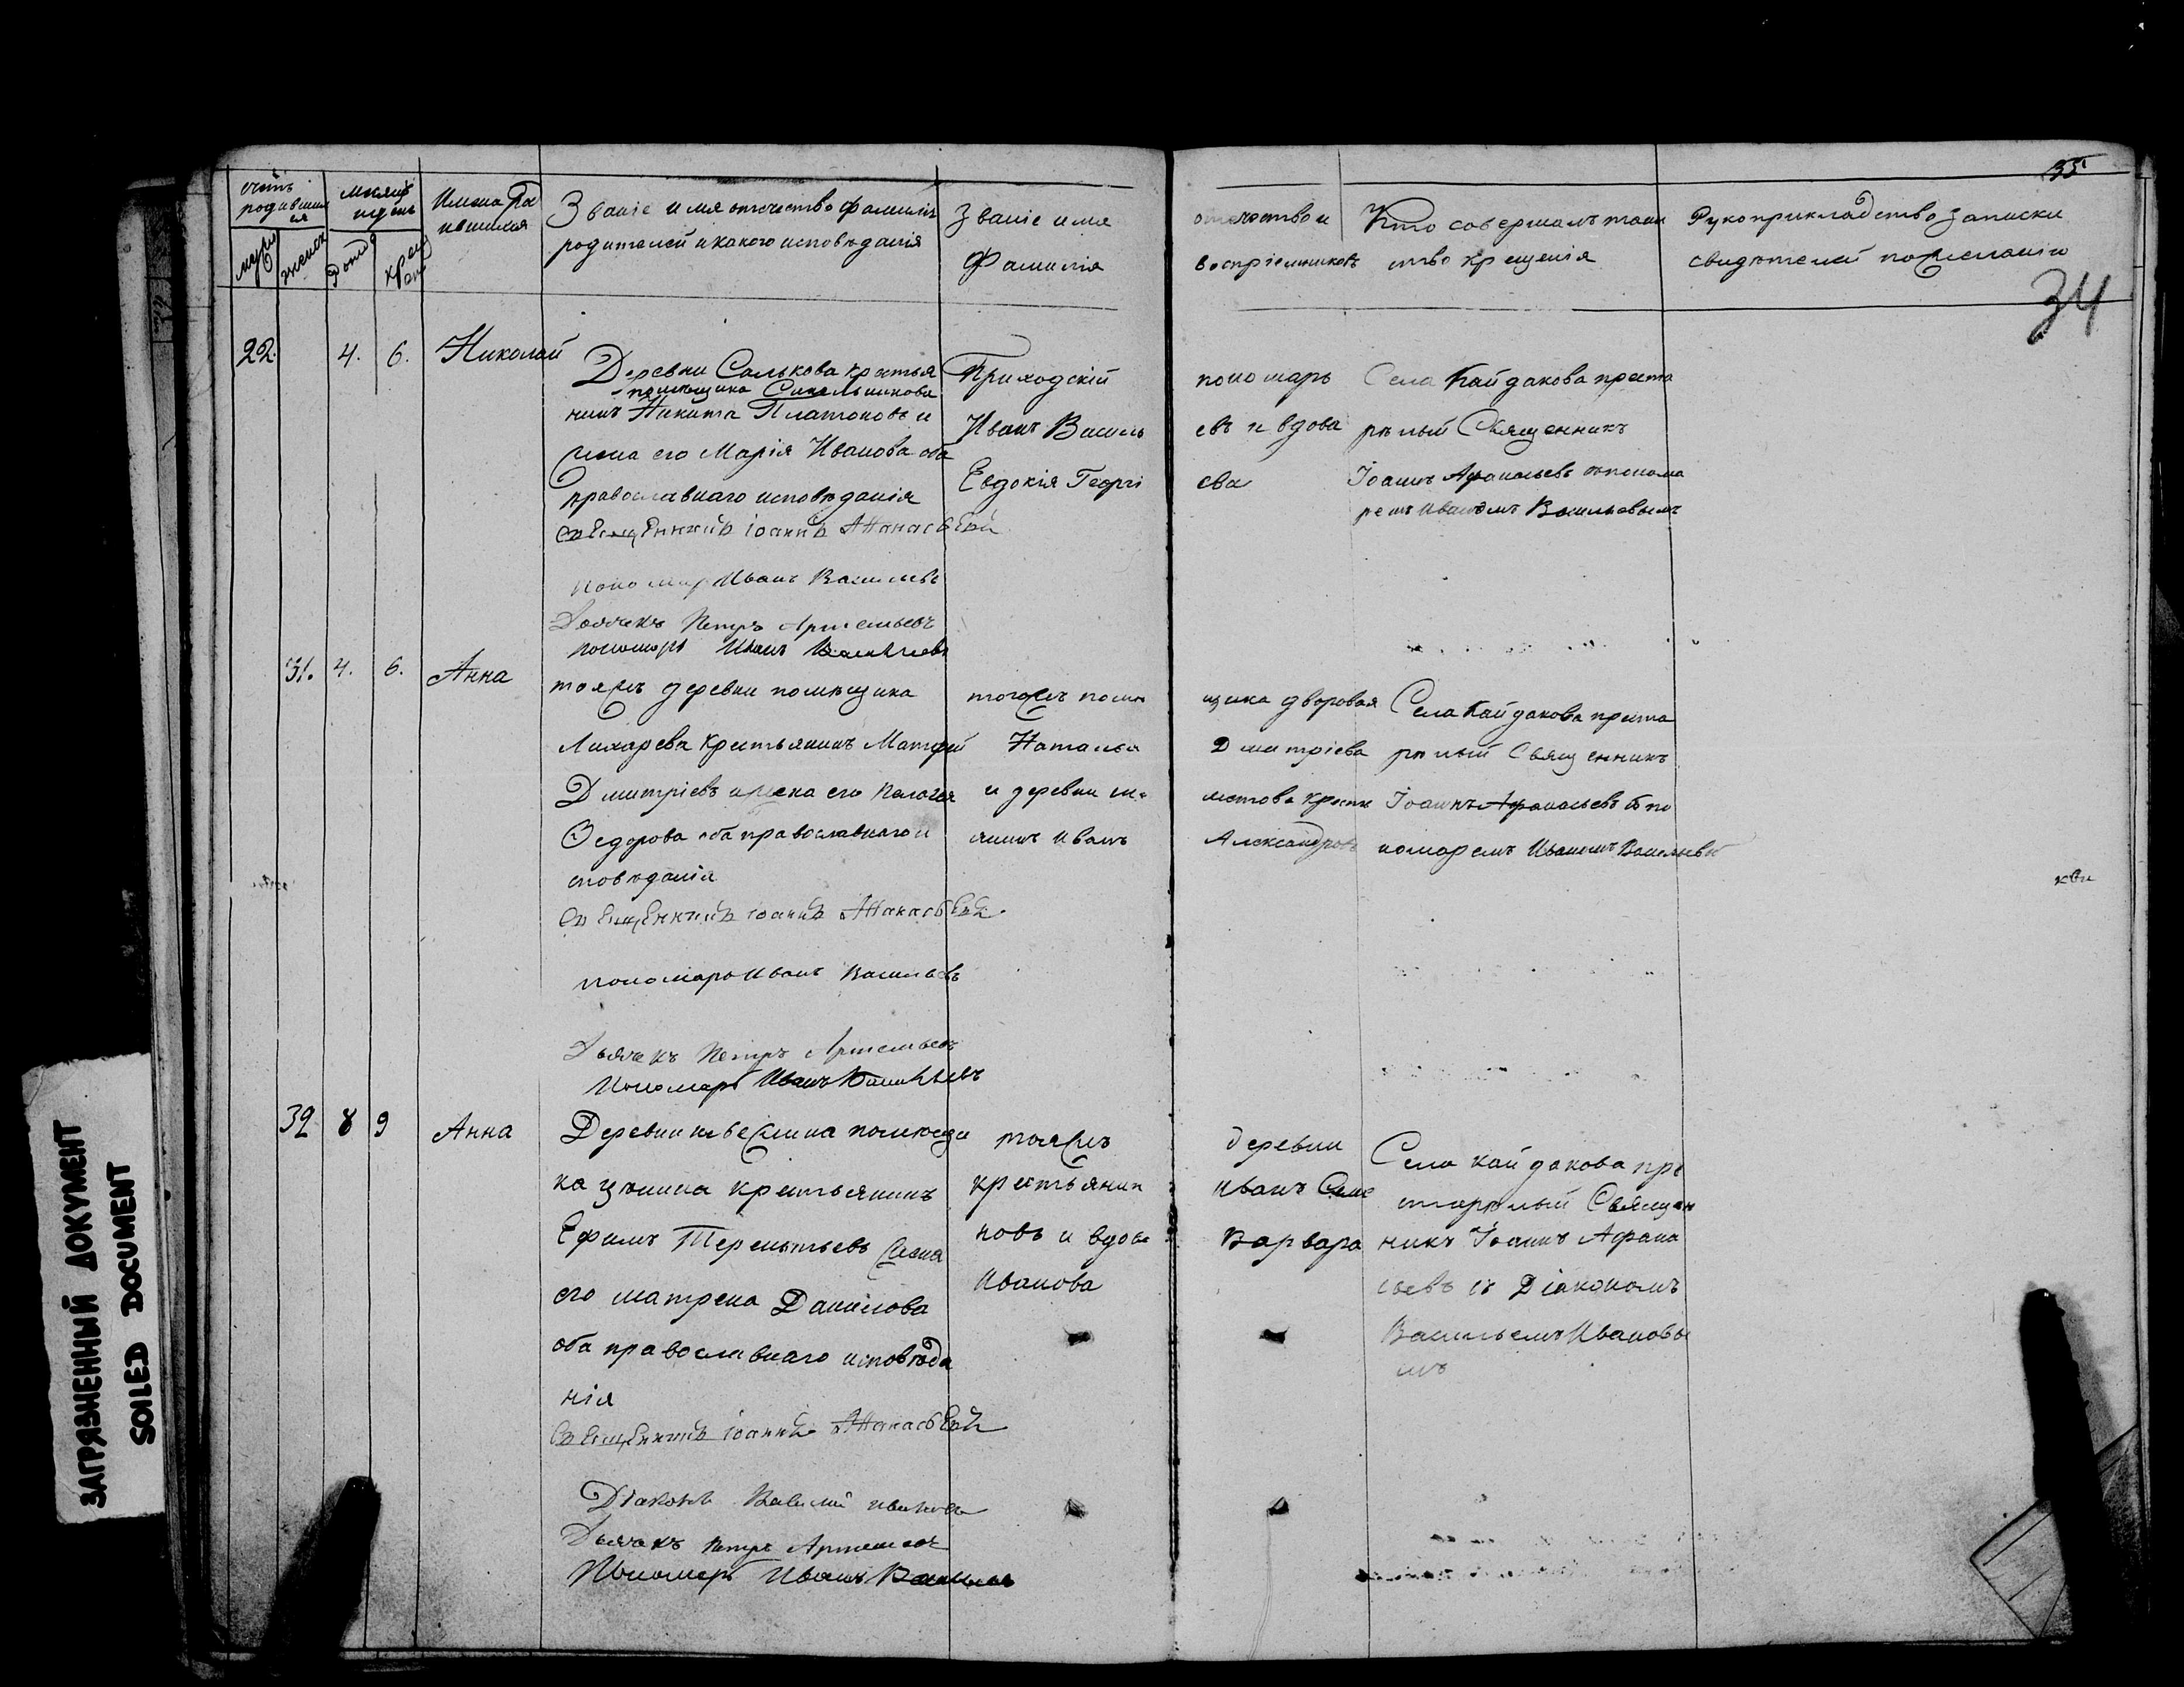 35
счетъ родившихся
мужск
женск
месяцъ и день
рожд
крещ
Имена родившихся
Званіе имя отечество фамилія
родителей и какого исповѣданія
Званіе имя отечество и
Фамилія воспріемниковъ
Кто совершалъ таин
ство крещенія
Рукоприкладство записки
свидѣтелей по желанію
34
22. 4. 6. Николай
Деревни Салькова крестья
помѣщика Синельникова
нинъ Никита Платоновъ и
жена его Марія Иванова оба
православнаго исповѣданія
Священникъ Іоаннъ Аѳанасьевъ
пономарь Иванъ Васильевъ
Дьячекъ Петръ Артемьевъ
пономарь Иванъ Васильевъ
Приходскій пономарь
Иванъ Василь евъ и вдова
Евдокія Георгі ева
Села Кайдакова преста
рѣлый Священникъ
Іоаннъ Афанасьевъ съ понома
ремъ Иваномъ Васильевымъ
31. 4. 6. Анна
тояжъ деревни помѣщика
Лихарева крестьянинъ Матфей
Дмитріевъ и жена его Пелагея
Ѳедорова оба православнаго и
сповѣданія
Священникъ Іоаннъ Аѳанасьевъ
пономарь Иванъ Васильевъ
Дьячекъ Петръ Артемьевъ
Пономарь Иванъ Васильевъ
тогожъ помѣ щика дворовая
Наталья Дмитріева
и деревни
янинъ Иванъ Александровъ
Села Кайдакова преста
рѣлый Священникъ
Іоаннъ Афанасьевъ съ по
номаремъ Иваномъ Васильевы
32 8 9 Анна
Деревни помѣщи
ка крестьянинъ
Ефимъ Терентьевъ жена
его Матрена Данилова
оба православнаго исповѣда
нія
Священникъ Іоаннъ Аѳанасьевъ
Діаконъ Василій Ивановъ
Дьячекъ Петръ Артемьевъ
Пономарь Иванъ Васильевъ
тояжъ деревни
крестьянин Иванъ Семе
новъ и вдова Варвара
Иванова
Села Кайдакова пре
старѣлый Священ
никъ Іоаннъ Афана
сьевъ съ Діакономъ
Васильемъ Ивановы
мъ
ЗАГРЯЗНЕННЫЙ ДОКУМЕНТ
SOILED DOCUMENT